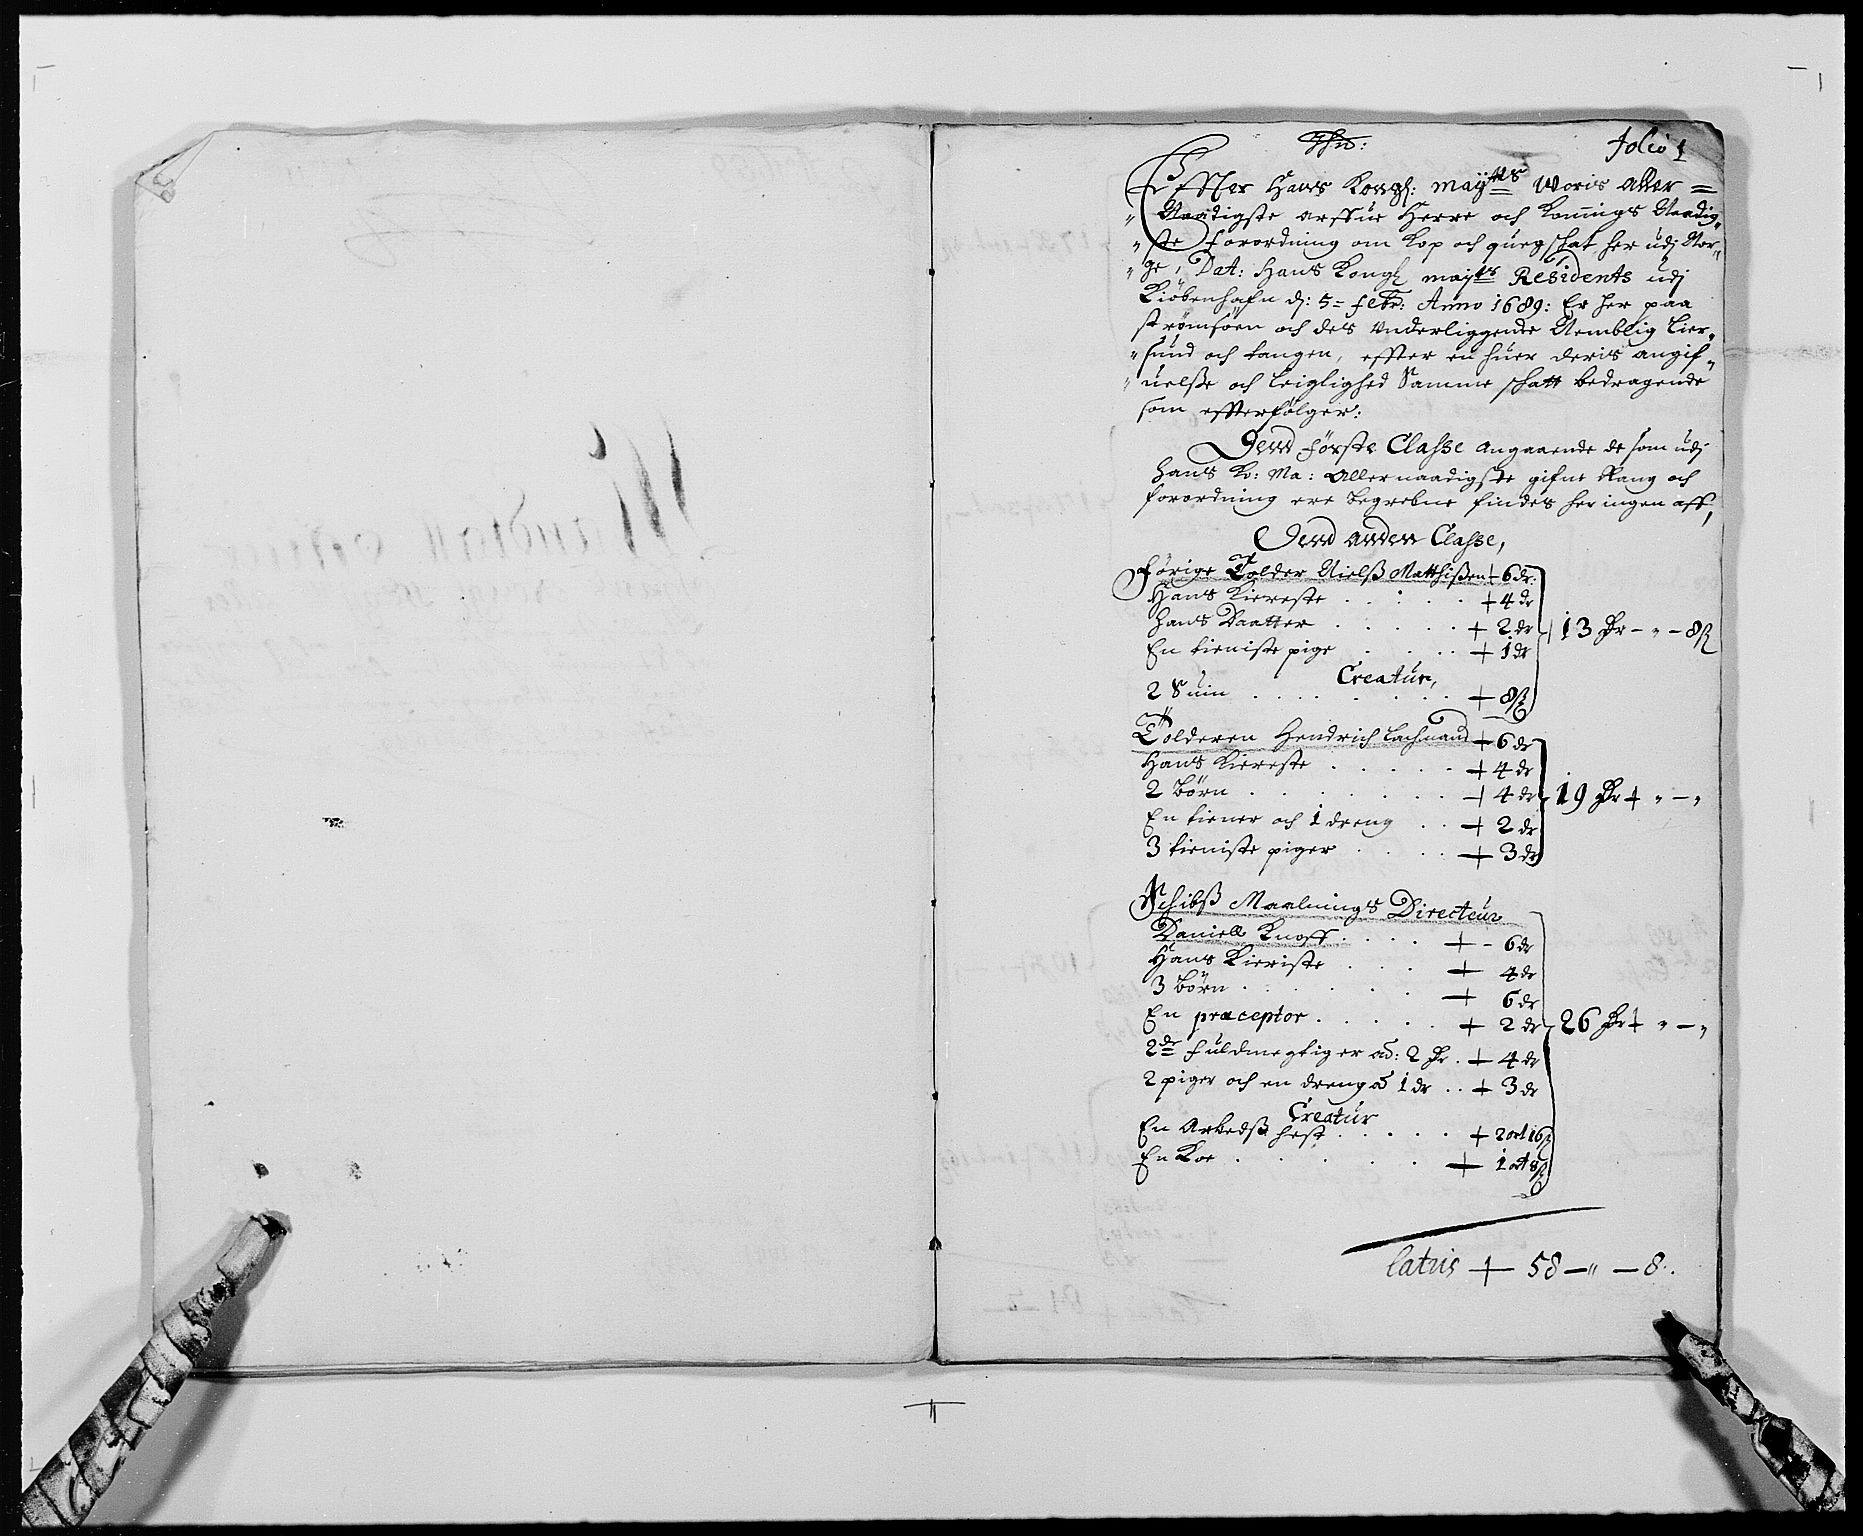 Jhs: Folio 1
Effter Hans Kongl: mayts Woris Aller =
Naadigste arffue Herre och Konnings Naadig„
„ste forordning om Kop och quegschat her udj Nor„
„ge, Dat: Hans Kongl mayts Residents udj
Kiöbenhafn dj: 5= febr: Anno 1689: Er her paa
strømsöen och des Underliggende Nemblig Lier„
„sund och tangen, effter en huer deris angif„
„uelse och leiglighed Samme schatt bedragende
som effterfölger:
Dend Förste Classe angaaende de som udj
Hans Ko: Ma: Allernaadigste gifne Rang och
forordning ere begrebne findes her ingen aff,
Dend anden Classe,
Förige Tolder Nielß Matthißen + 6 dr
Hans Kiereste . . . . . + 4 dr
Hans Daatter . . . . . + 2 dr 13 Dr – „ – 8 ß
En tieniste pige . . . + 1 dr
Creatur,
2 Suin . . . . . . + 8 ß
Tolderen Hendrich Lachmand + 6 dr
Hans Kiereste . . . . . + 4 dr
2 Börn . . . . . . . + 4 dr 19 Dr + „ – „
En tiener och 1 dreng . . + 2 dr
3 tieniste piger . . . . + 3 dr
Schibß Maalnings Directeur
Daniell Knoff . . . . + - 6 dr
Hans Kieriste . . . + 4 dr
3 Börn . . . . . . + 6 dr
En præceptor . . . . . + 2 dr 26 Dr + „ – „
2de fuldmegtiger ad: 2 Dr . + 4 dr
2 piger och en dreng ad 1 dr . . + 3 dr
Creatur
En Arbedß hest . . . . . + 2 ort 16 ß
En Koe . . . . . . + 1 ort 8 ß
Latus + 58 – „ – 8 .